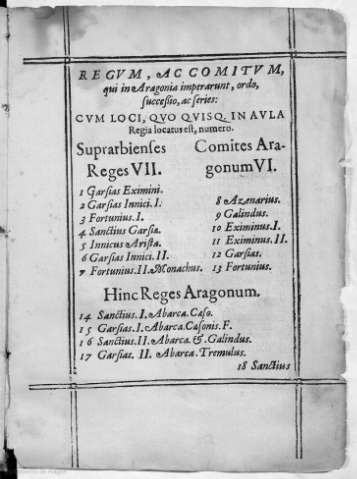 REGVM, AC COMITVM,
qui in Aragonia imperarunt, ordo,
successio, ac series:
CVM LOCI, QVO QVISQ. IN AVLA
Regia locatus est, numero.
Suprarbienses
Reges VII.
1 Garsias Eximini.
2 Garsias Innici. I.
3 Fortunius. I.
4 Sanctius Garsiæ.
5 Innicus Arista.
6 Garsias Innici. II.
7 Fortunius. II. Monachus.
Comites Ara-
gonum VI.
8 Azenarius.
9 Galindus.
10 Eximinus. I.
11 Eximinus. II.
12 Garsias.
13 Fortunius.
Hinc Reges Aragonum.
14 Sanctius. I. Abarca. Cæso.
15 Garsias. I. Abarca. Cæsonis. F.
16 Sanctius. II. Abarca. &. Galindus.
17 Garsias. II. Abarca. Tremulus.
18 Sanctius